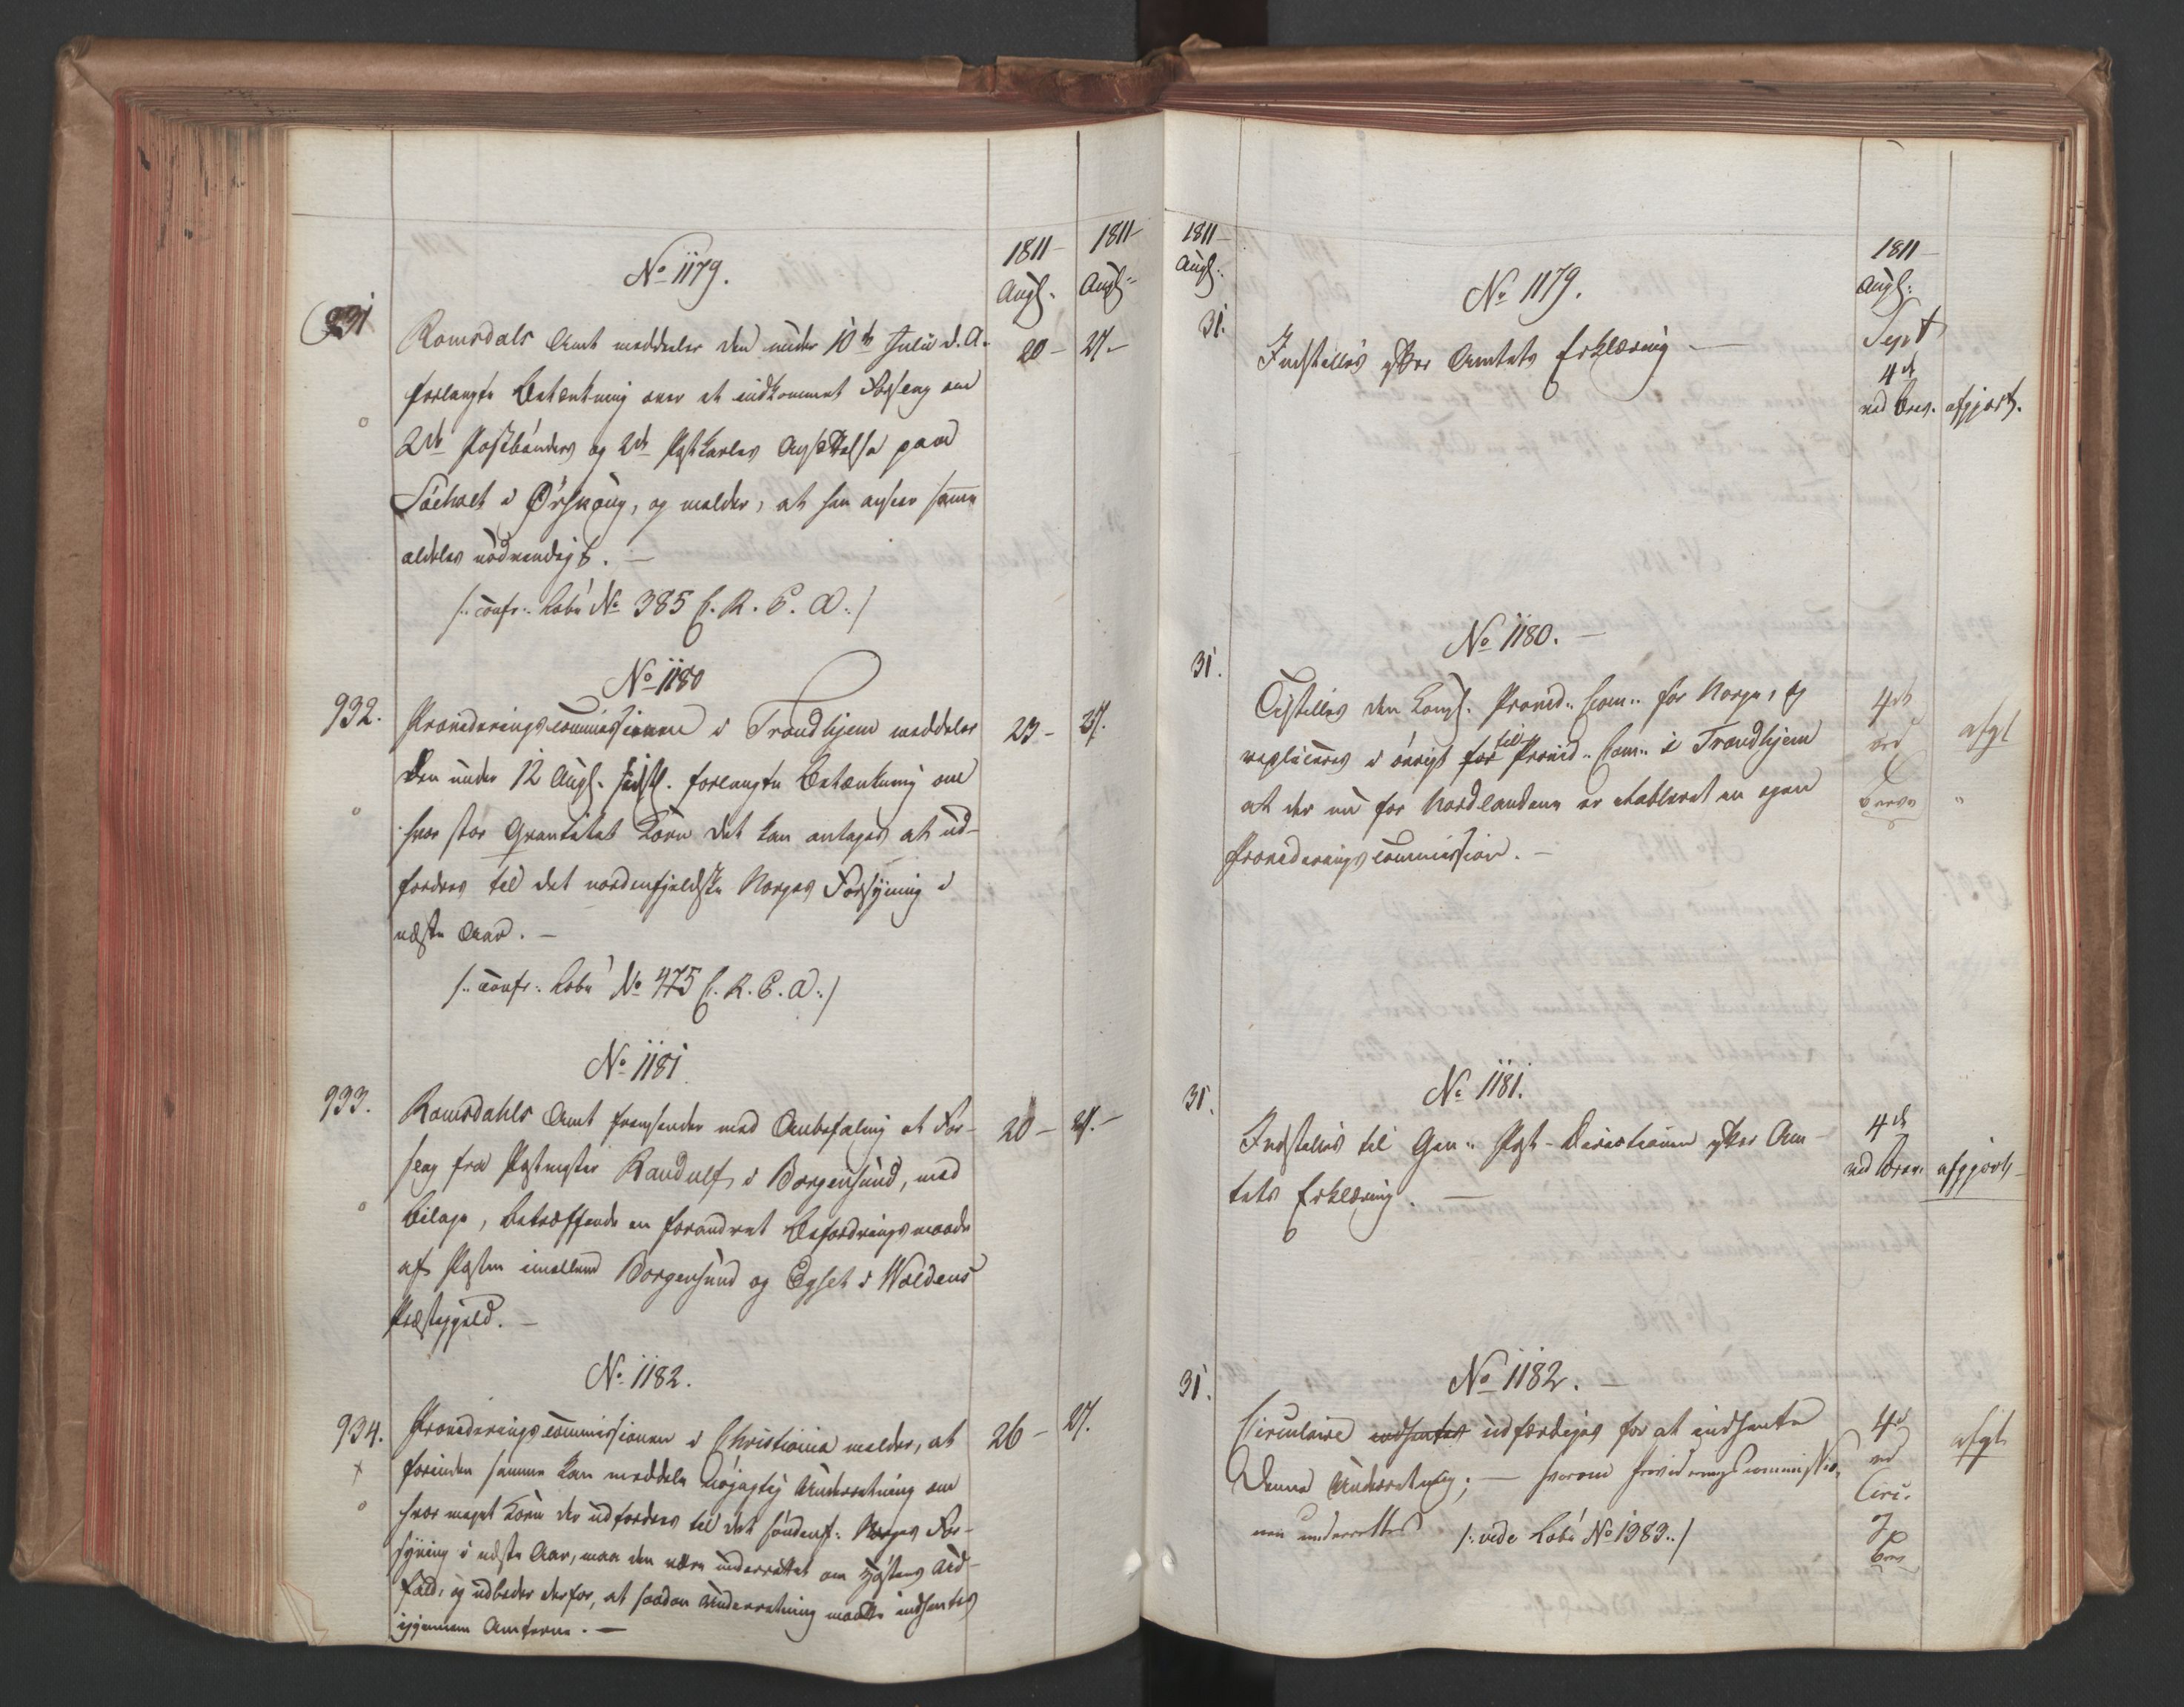 1811
Augl.
1811
Augl.
No 1179.
931
Romsdals Amt meddeeler den under 10de Julii d. A.
20 -
27. -
forlangte Betænkning over et indkommet Forslag om
2de Postbönders og 2de Postkarles Ansættelse paa
Söeholt i Ørskoug, og melder, at han anseer samme
aldeles nödvendigt. -
/: confr: Lobn No 385 C. R. E. A :/
No 1180
932.
Provideringscommissionen i Trondhjem meddeler
23 -
27.
den under 12 Augl. sidstl. forlangte Betænkning om
hvor stor Qvantitet Korn det kan antages at ud-
fordres til det nordenfjeldske Norges Forsyning i
næste Aar. -
/: confr: Lobn No 475 C. R. E. A :/
No 1181
933.
Romsdahls Amt fremsender med Anbefaling et For-
20 -
27. -
slag fra Postmester Randulf i Borgensund, med
Bilage, betræffende en forandret Befordringsmaade
af Posten imellem Borgensund og Egset i Woldens
Præstegjeld. -
No 1182.
934.
Provideringscommissionen i Christiania melder, at
26 -
27.
forinden samme kan meddele nöjagtig Underretning om
hvor meget Korn der udfordres til det söndenf: Norges For-
syning i næste Aar, maa den være underrettet om Höstens Ud-
fald, og udbeder derfor, at saadan Underretning maatte indhentes
igjennem Amterne. -
1811
Augl:
1811
Augl:
No 1179.
31.
Indstilles efter Amtets Erklæring -
Sept
4de
ved Brev. afgjort.
No 1180. -
31.
Tilstilles den Kongl. Provid: Com: for Norge, og
4de
ved
afgl
repliceres i övrigt for til Provid: Com: i Trondhjem
at der nu for Nordlandene er etableret en egen
Breve
"
Provideringscommission. -
No 1181.
31.
Indstilles til Gen: Post-Directionen efter Am-
4de
ved Brev. afgjort -
tets Erklæring. -
No 1182. -
31.
Circulaire indhentes udfærdiges for at indhente
4de
ved
afgl
denne Underretning; - hvorom Provideringscommissio-
Circ.
nen underrettes /: vide Lobn No 1383 :/
Brev